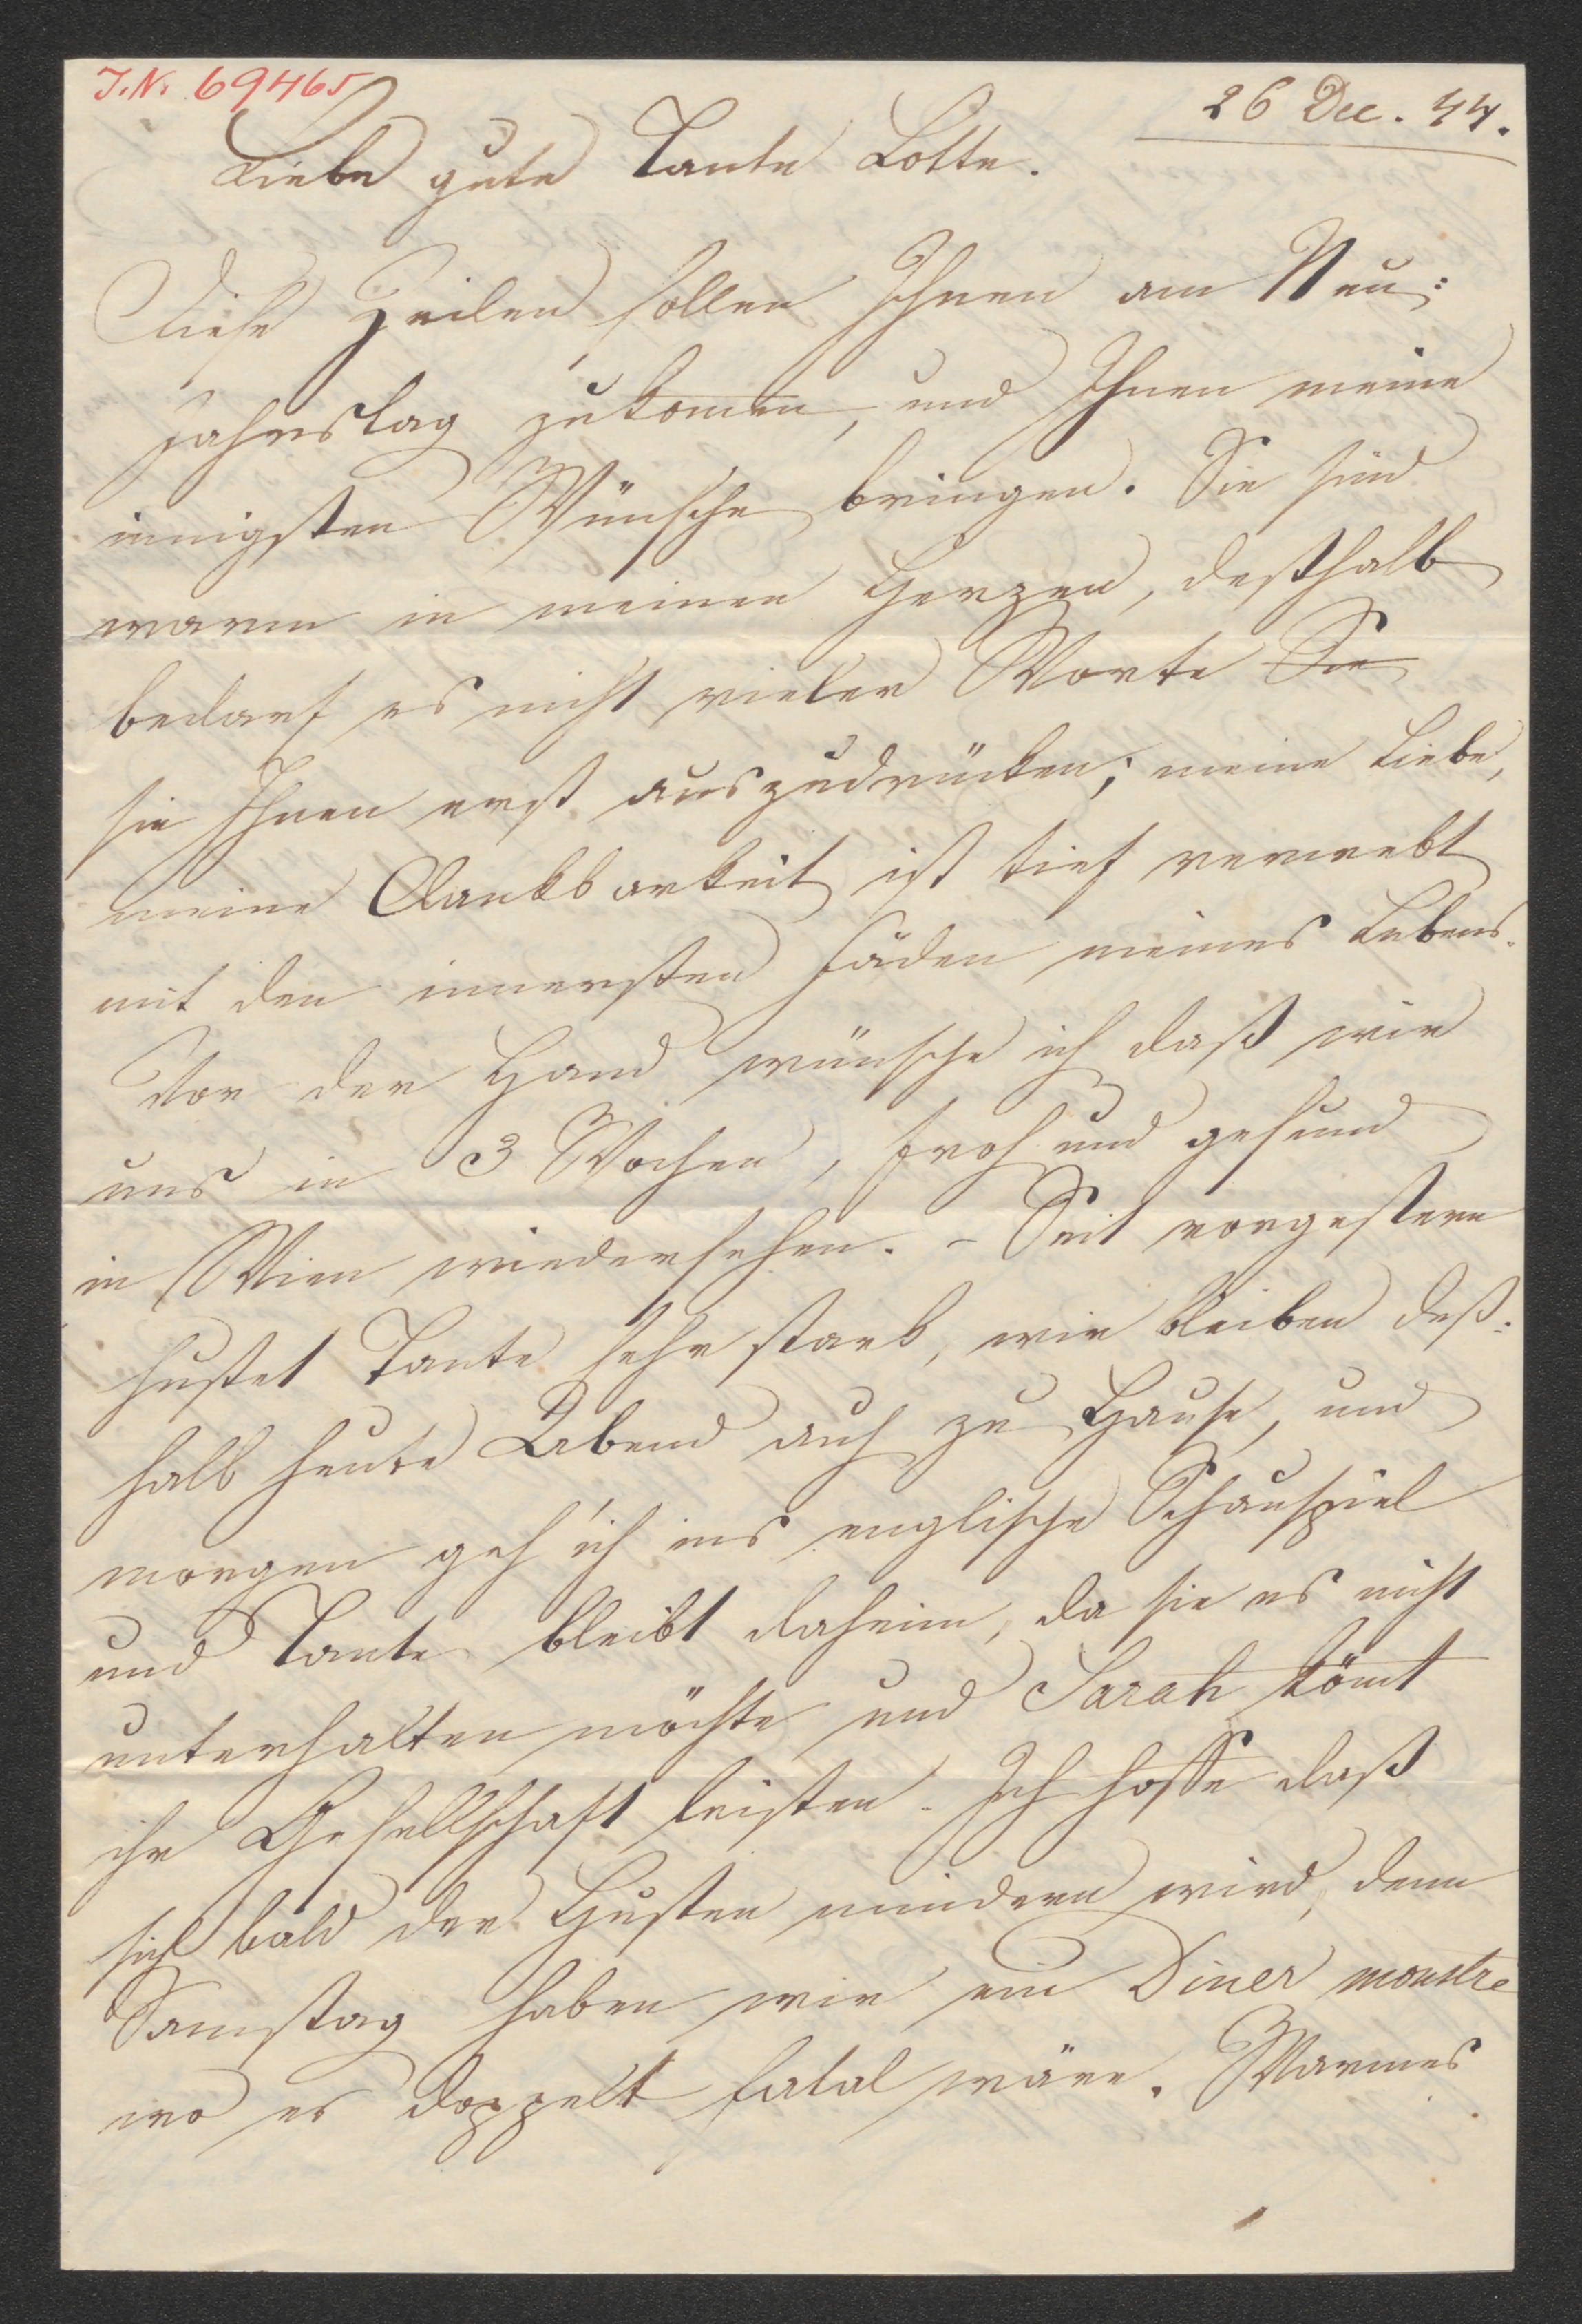 J. N. 69465
26 Dec. 44.
Liebe gute Tante Lotte.
Diese Zeilen sollen Ihnen am Neu:
jahrstag zukom̄en, und Ihnen meine
innigsten Wünsche bringen. Sie sind
warm in meinen Herzen, deßhalb
bedarf es nicht vieler Worte Sie
sie Ihnen erst auszudrücken; meine Liebe,
meine Dankbarkeit ist tief verwebt
mit den innersten Fäden meines Lebens.
Vor der Hand wünsche ich daß wir
uns in 3 Wochen, froh und gesund
in Wien wiedersehen. – Seit vorgestern
hustet Tante sehr stark, wir bleiben deß:
halb heute Abend auch zu Hause, und
morgen geh' ich ins englische Schauspiel
und Tante bleibt daheim, da sie es nicht
unterhalten möchte und Sarah köm̄t
ihr Gesellschaft leisten. Ich hoffe daß
sich bald der Husten mindern wird, denn
Samstag haben wir ein Diner monstre
wo es doppelt fatal wäre. Warmes